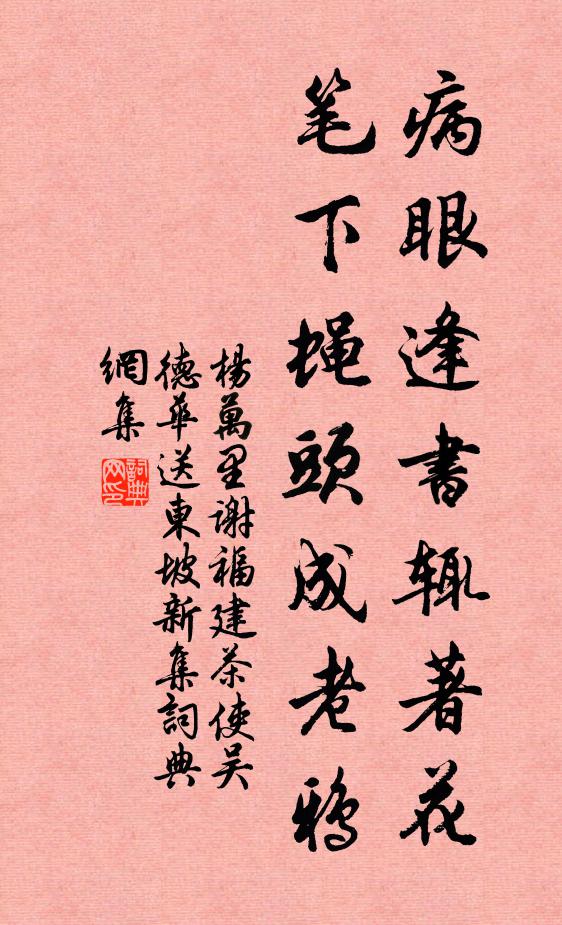 病眼逢書辄著花
笔下蝇頭成老鴉
楊萬里谢福建茶使吴
德華送東坡新集詞典
網集
詞典
网印